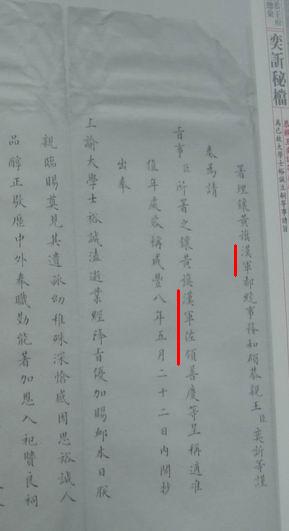 奕訢秘檔
署理鑲黃旗漢軍都統事務和碩恭親王臣奕訢等謹
奏為請
旨事臣所署之鑲黃旗漢軍佐領善慶等呈稱適准
值年處咨稱咸豐八年五月二十二日內閣抄
出奉
上諭大學士裕誠溘逝業經降旨優加賜卹本日朕
親臨賜奠見其遺孤幼稚殊深愴感因思裕誠人
品醇正敭歷中外奉職勤能著加恩入祀賢良祠